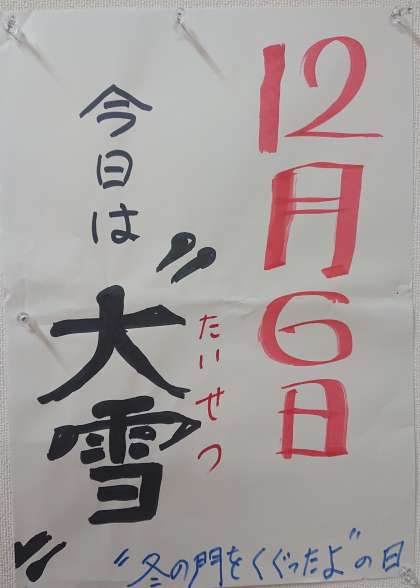 12月6日
今日は
〝大雪〟
たいせつ
〝冬の門をくぐったよ〟の日